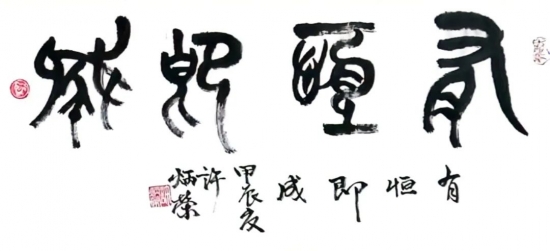 有恒即成
有恒即成
甲辰夏
许
炳荣